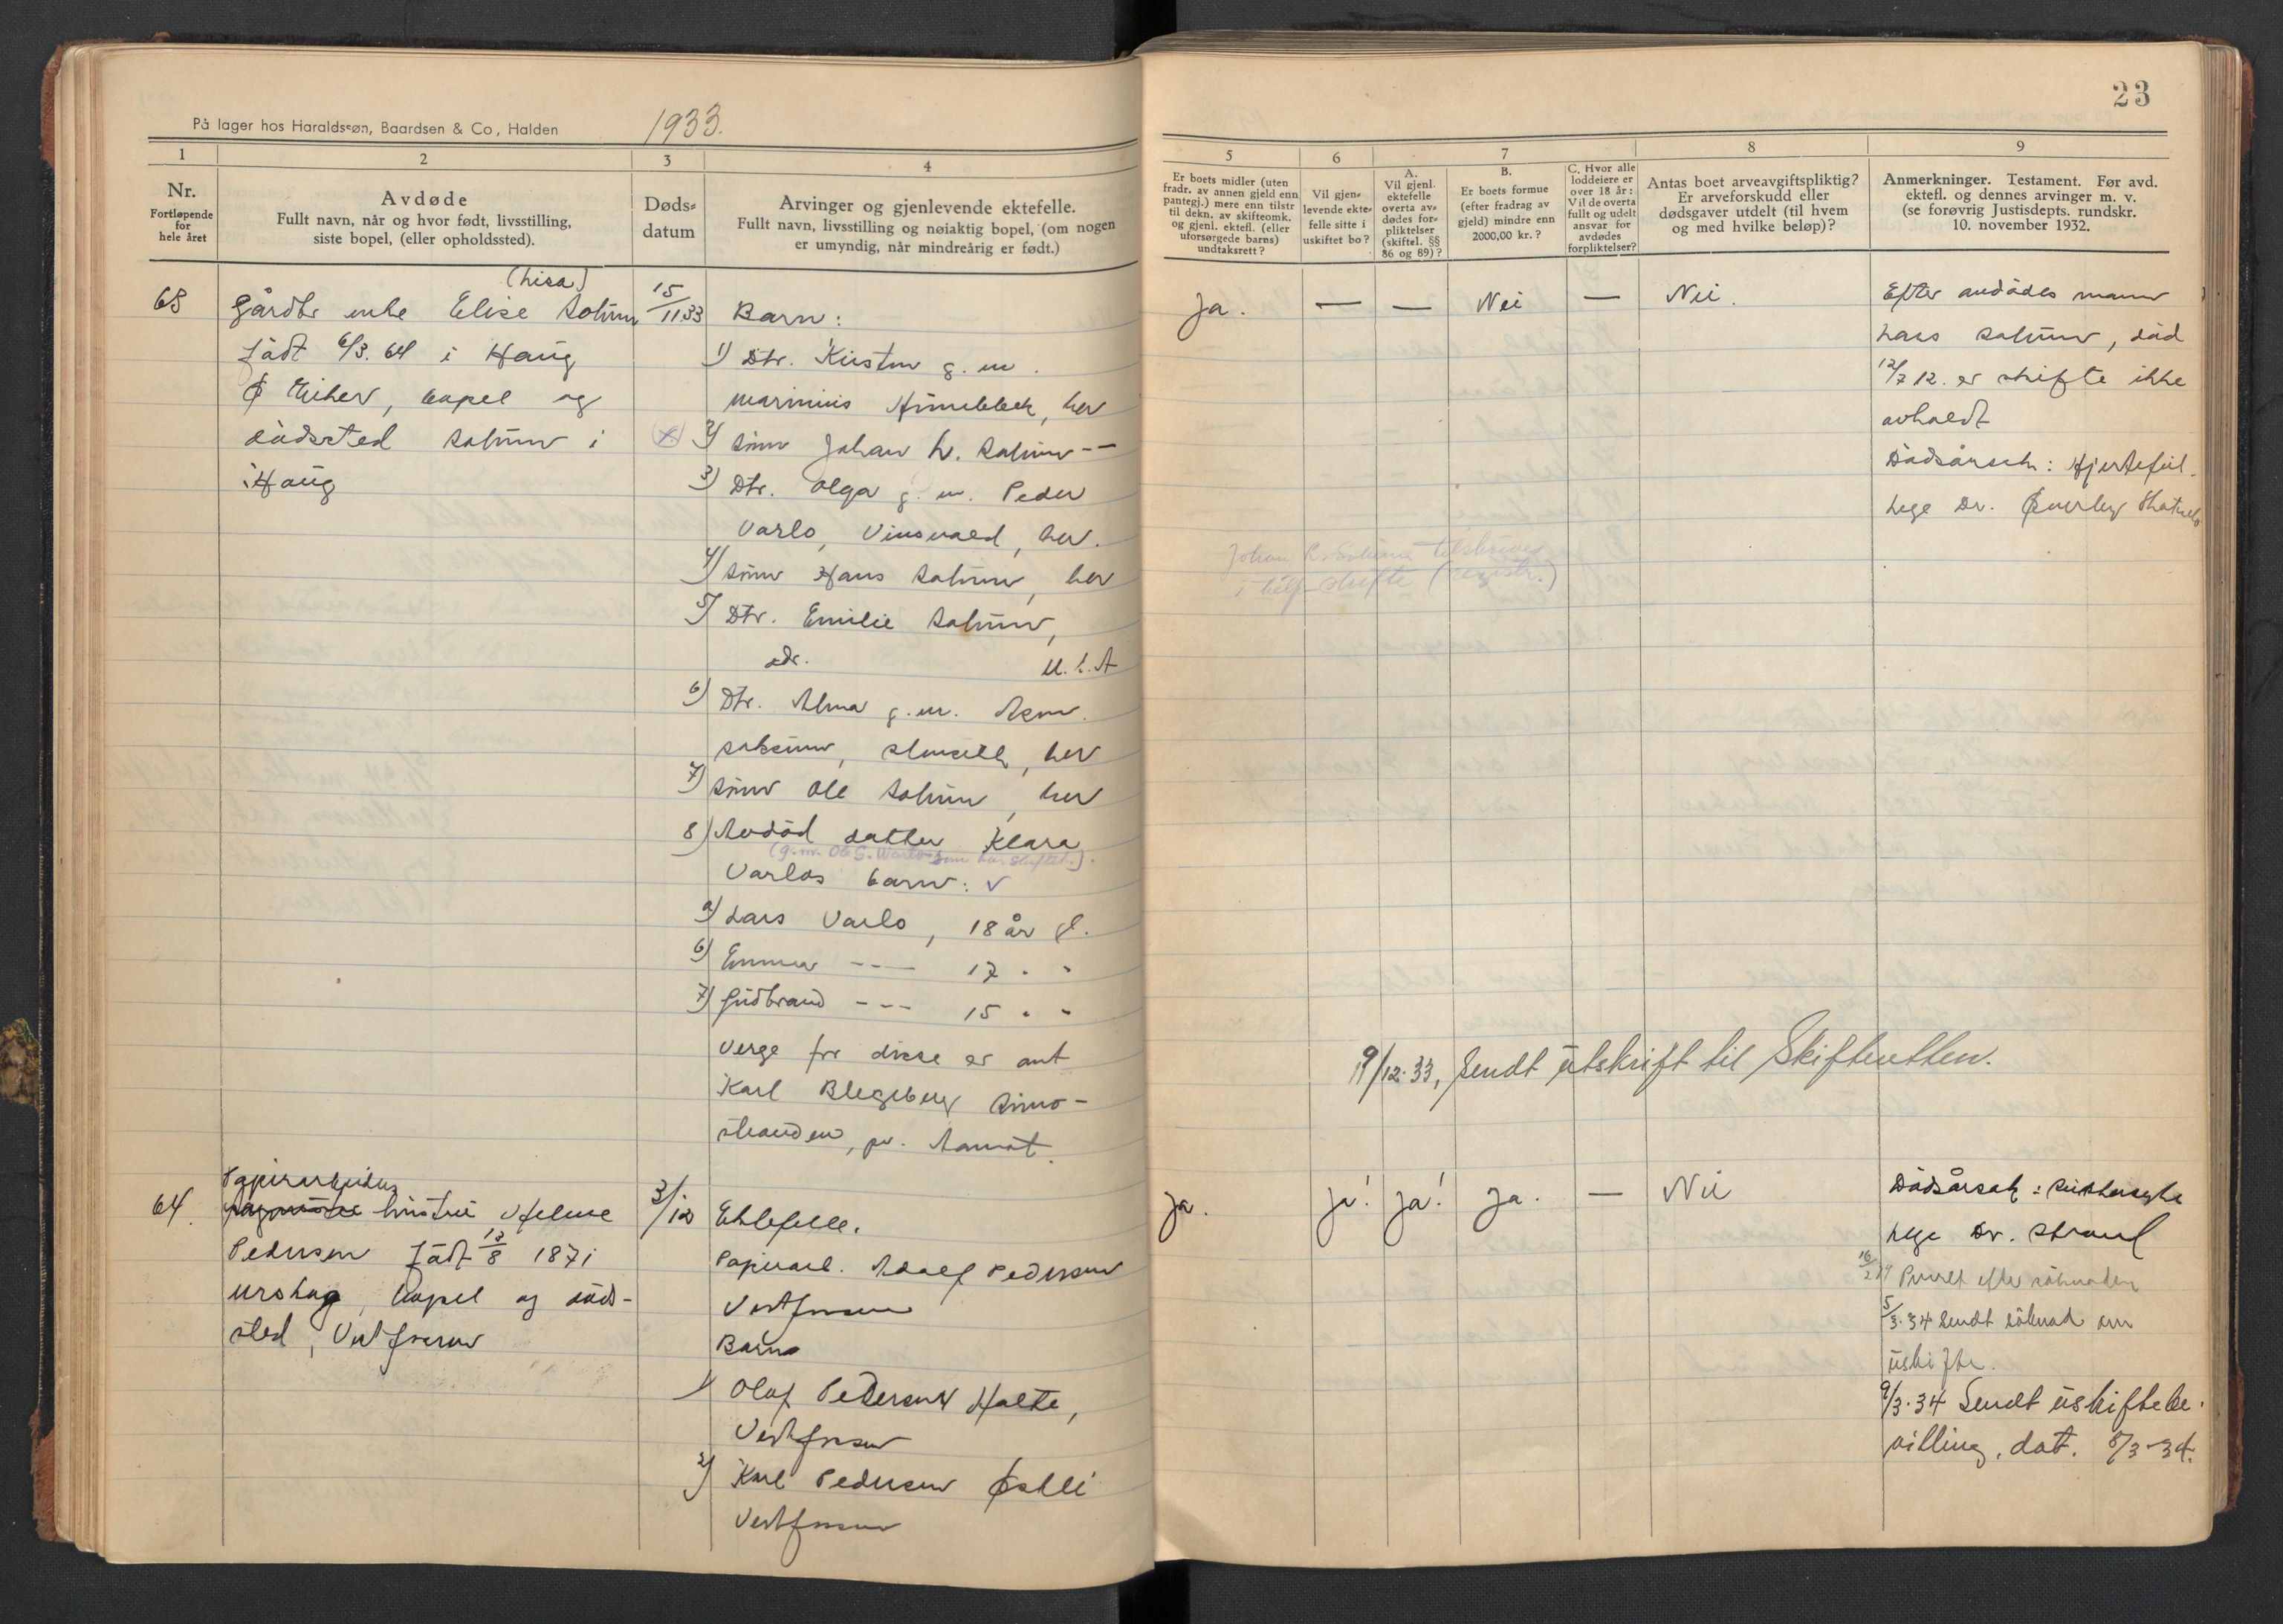 På lager hos Haraldssøn, Baardsen & Co, Halden
1933.
1
2
3
4
Nr.
Fortløpende
for
hele året
Avdøde
Fullt navn, når og hvor født, livsstilling,
siste bopel, (eller opholdssted).
Døds-
datum
Arvinger og gjenlevende ektefelle.
Fullt navn, livsstilling og nøiaktig bopel, (om nogen
er umyndig, når mindreårig er født.)
(Lisa)
63
gårdbr enke Elise Solum
født 6/3. 64 i Haug
Ø Eiker, bopel og
dødssted Solum i
Haug
15/11 33
Barn:
1) Dtr. Kirsten g. m.
Marinius Hunebbek, her
2) Sønn Johan L. Solum --
3) Dtr. Olga g. m. Peder
Varlo, Vinsvold, her.
4) Sønn Hans Solum, her
5) Dtr. Emilie Solum,
adr. U. S. A
6) Dtr. Alma g. m. Asm.
her
7) Sønn Ole Solum, her
8) Avdød datter Klara
(g. m. Ole G. Warlo som har skiftet.).
Varlos barn: v
a) Lars Varlo, 18 år gl.
b) Emma --- 17 " "
7) Gudbrand --- 15 " "
Verge for disse er ant
Karl Blegeberg Simo-
stranden, pr. Aamot.
64.
Papirarbeider
hustru Helene
Pedersen født 13/8 1871
Urskog, bopel og død-
sted, Vestfossen
3/12
Ektefelle.
Papirarb. Adolf Pedersen
Vestfossen
Barn
1) Olaf Pedersen Holte,
Vestfossen
2) Karl Pedersen Østli
Vestfossen
23
5
6
7
8
9
Er boets midler (uten
fradr. av annen gjeld enn
pantegj.) mere enn tilstr
til dekn. av skifteomk.
og gjenl. ektefl. (eller
uforsørgede barns)
undtaksrett?
Vil gjen-
levende ekte-
felle sitte i
uskiftet bo?
A.
Vil gjenl.
ektefelle
overta av-
dødes for-
pliktelser
(skiftel. §§
86 og 89)?
B.
Er boets formue
(efter fradrag av
gjeld) mindre enn
2000,00 kr.?
C. Hvor alle
loddeiere er
over 18 år:
Vil de overta
fullt og udelt
ansvar for
avdødes
forpliktelser?
Antas boet arveavgiftspliktig?
Er arveforskudd eller
dødsgaver utdelt (til hvem
og med hvilke beløp)?
Anmerkninger. Testament. Før avd.
ektefl. og dennes arvinger m. v.
(se forøvrig Justisdepts. rundskr.
10. november 1932.
Ja. — — Nei — Nei.
Efter avdødes mann
Lars Solum, død
12/7 12. er skifte ikke
avholdt
Dødsårsak: Hjertefeil.
Lege Dr. Øverby Skotselv
Johan L. Solum tilskrives
i helf skifte (registr.)
9/12. 33, Sendt utskrift til Skifteretten.
Ja. Ja! Ja! Ja. — Nei
Dødsårsak: Sukkersyke
Lege Dr. Strand
16/2 34 Purret efter søknaden
5/3. 34 Sendt søknad om
uskifte.
9/3. 34 Sendt uskiftebe-
villing, dat. 8/3-34.